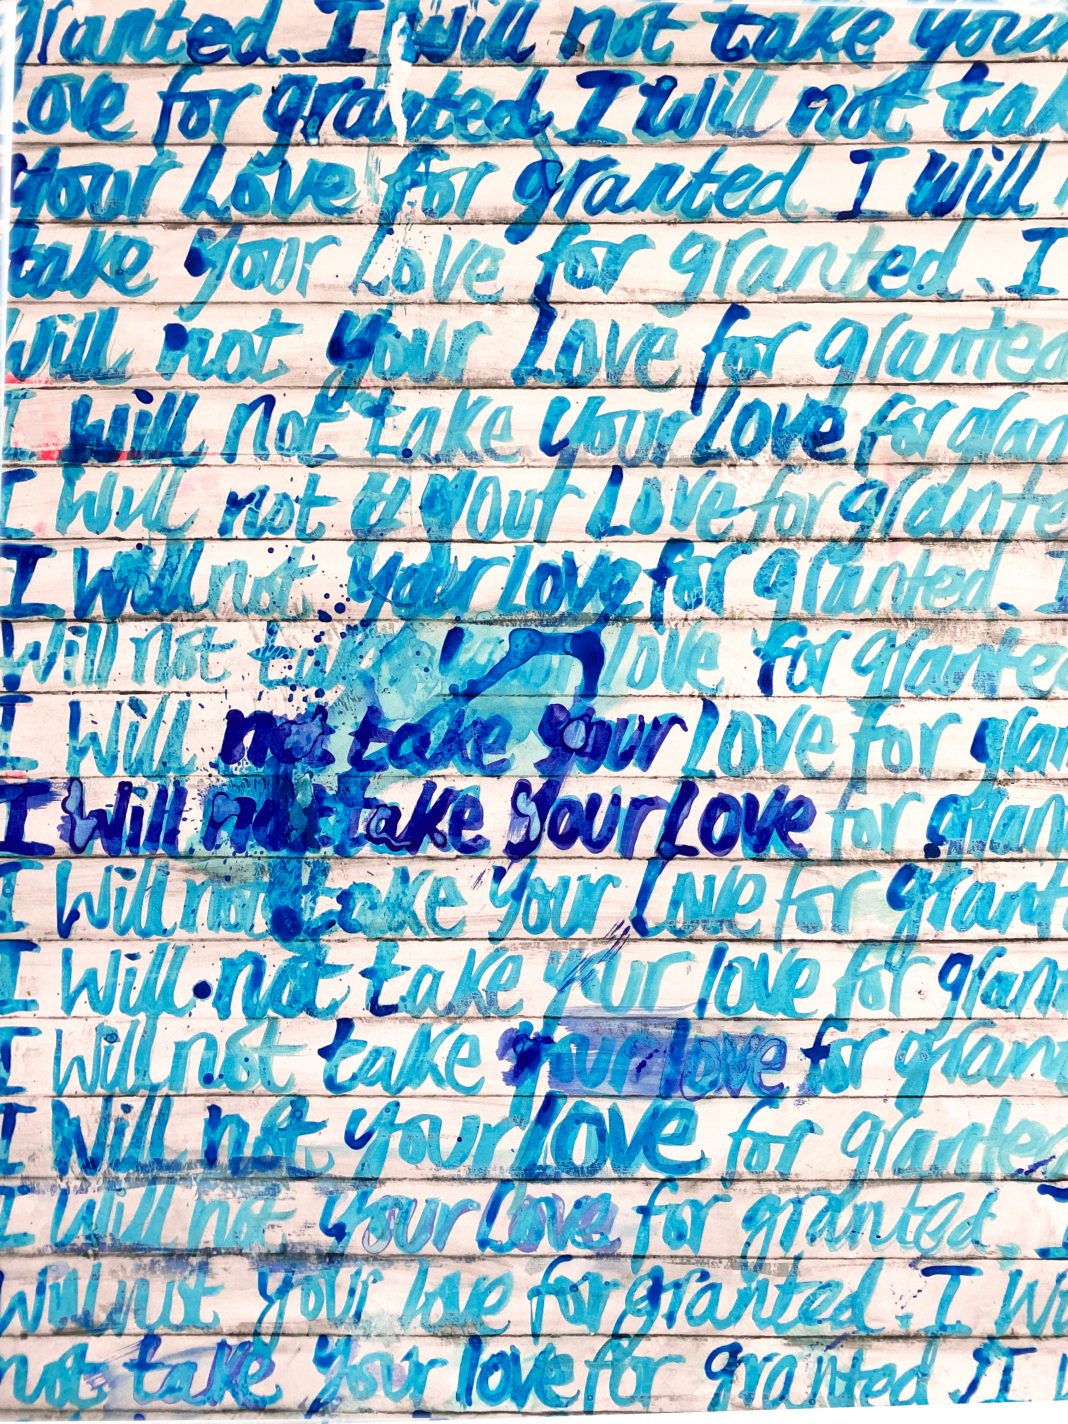 granted. I will not take your
Love for granted I will not tak
your Love for granted I Will
take your Love for granted. I
Will not your Love for granted
I will not take your Love for gran
I will not your Love for grante
I will not your love for granted. I
Will not ta your love for granted
I Will not take your Love for gran
I Will not take your Love for gran
I Will not take your Love for grant
I Will not take your love for gran
I Will not take your love for grant
I Will not your Love for granted
I Will not your Love for granted. I
Will not your love for granted. I Wi
not take your love for granted I